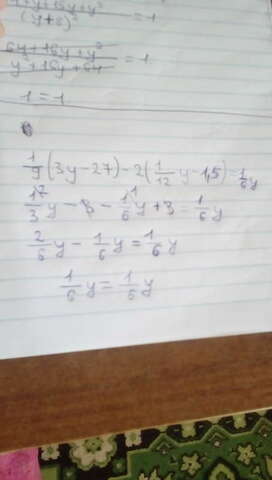 (y+8)² = 1
64+16y+y² / y²+16y+64 = 1
1 = 1
1/9 (3y-27) - 2(1/12 y - 1,5) = 1/6 y
1/3 y - 3 - 1/6 y + 3 = 1/6 y
2/6 y - 1/6 y = 1/6 y
1/6 y = 1/6 y